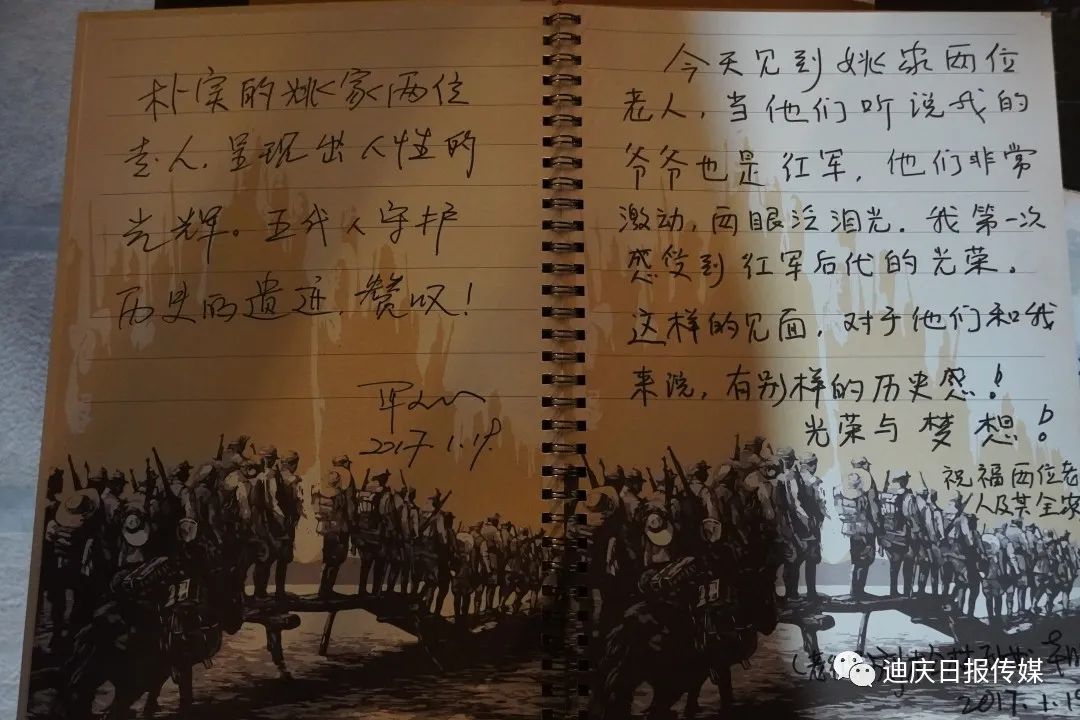 朴实的姚家两位
老人,呈现出人性的
光辉。五代人守护
历史的遗迹,赞叹!
2017.1.19
今天见到姚家两位
老人,当他们听说我的
爷爷也是红军,他们非常
激动,两眼泛泪光。我第一次
感受到红军后代的光荣。
这样的见面,对于他们和我
来说,有别样的历史感!
光荣与梦想!
祝福两位老
人及其全家
2017.1.19
迪庆日报传媒